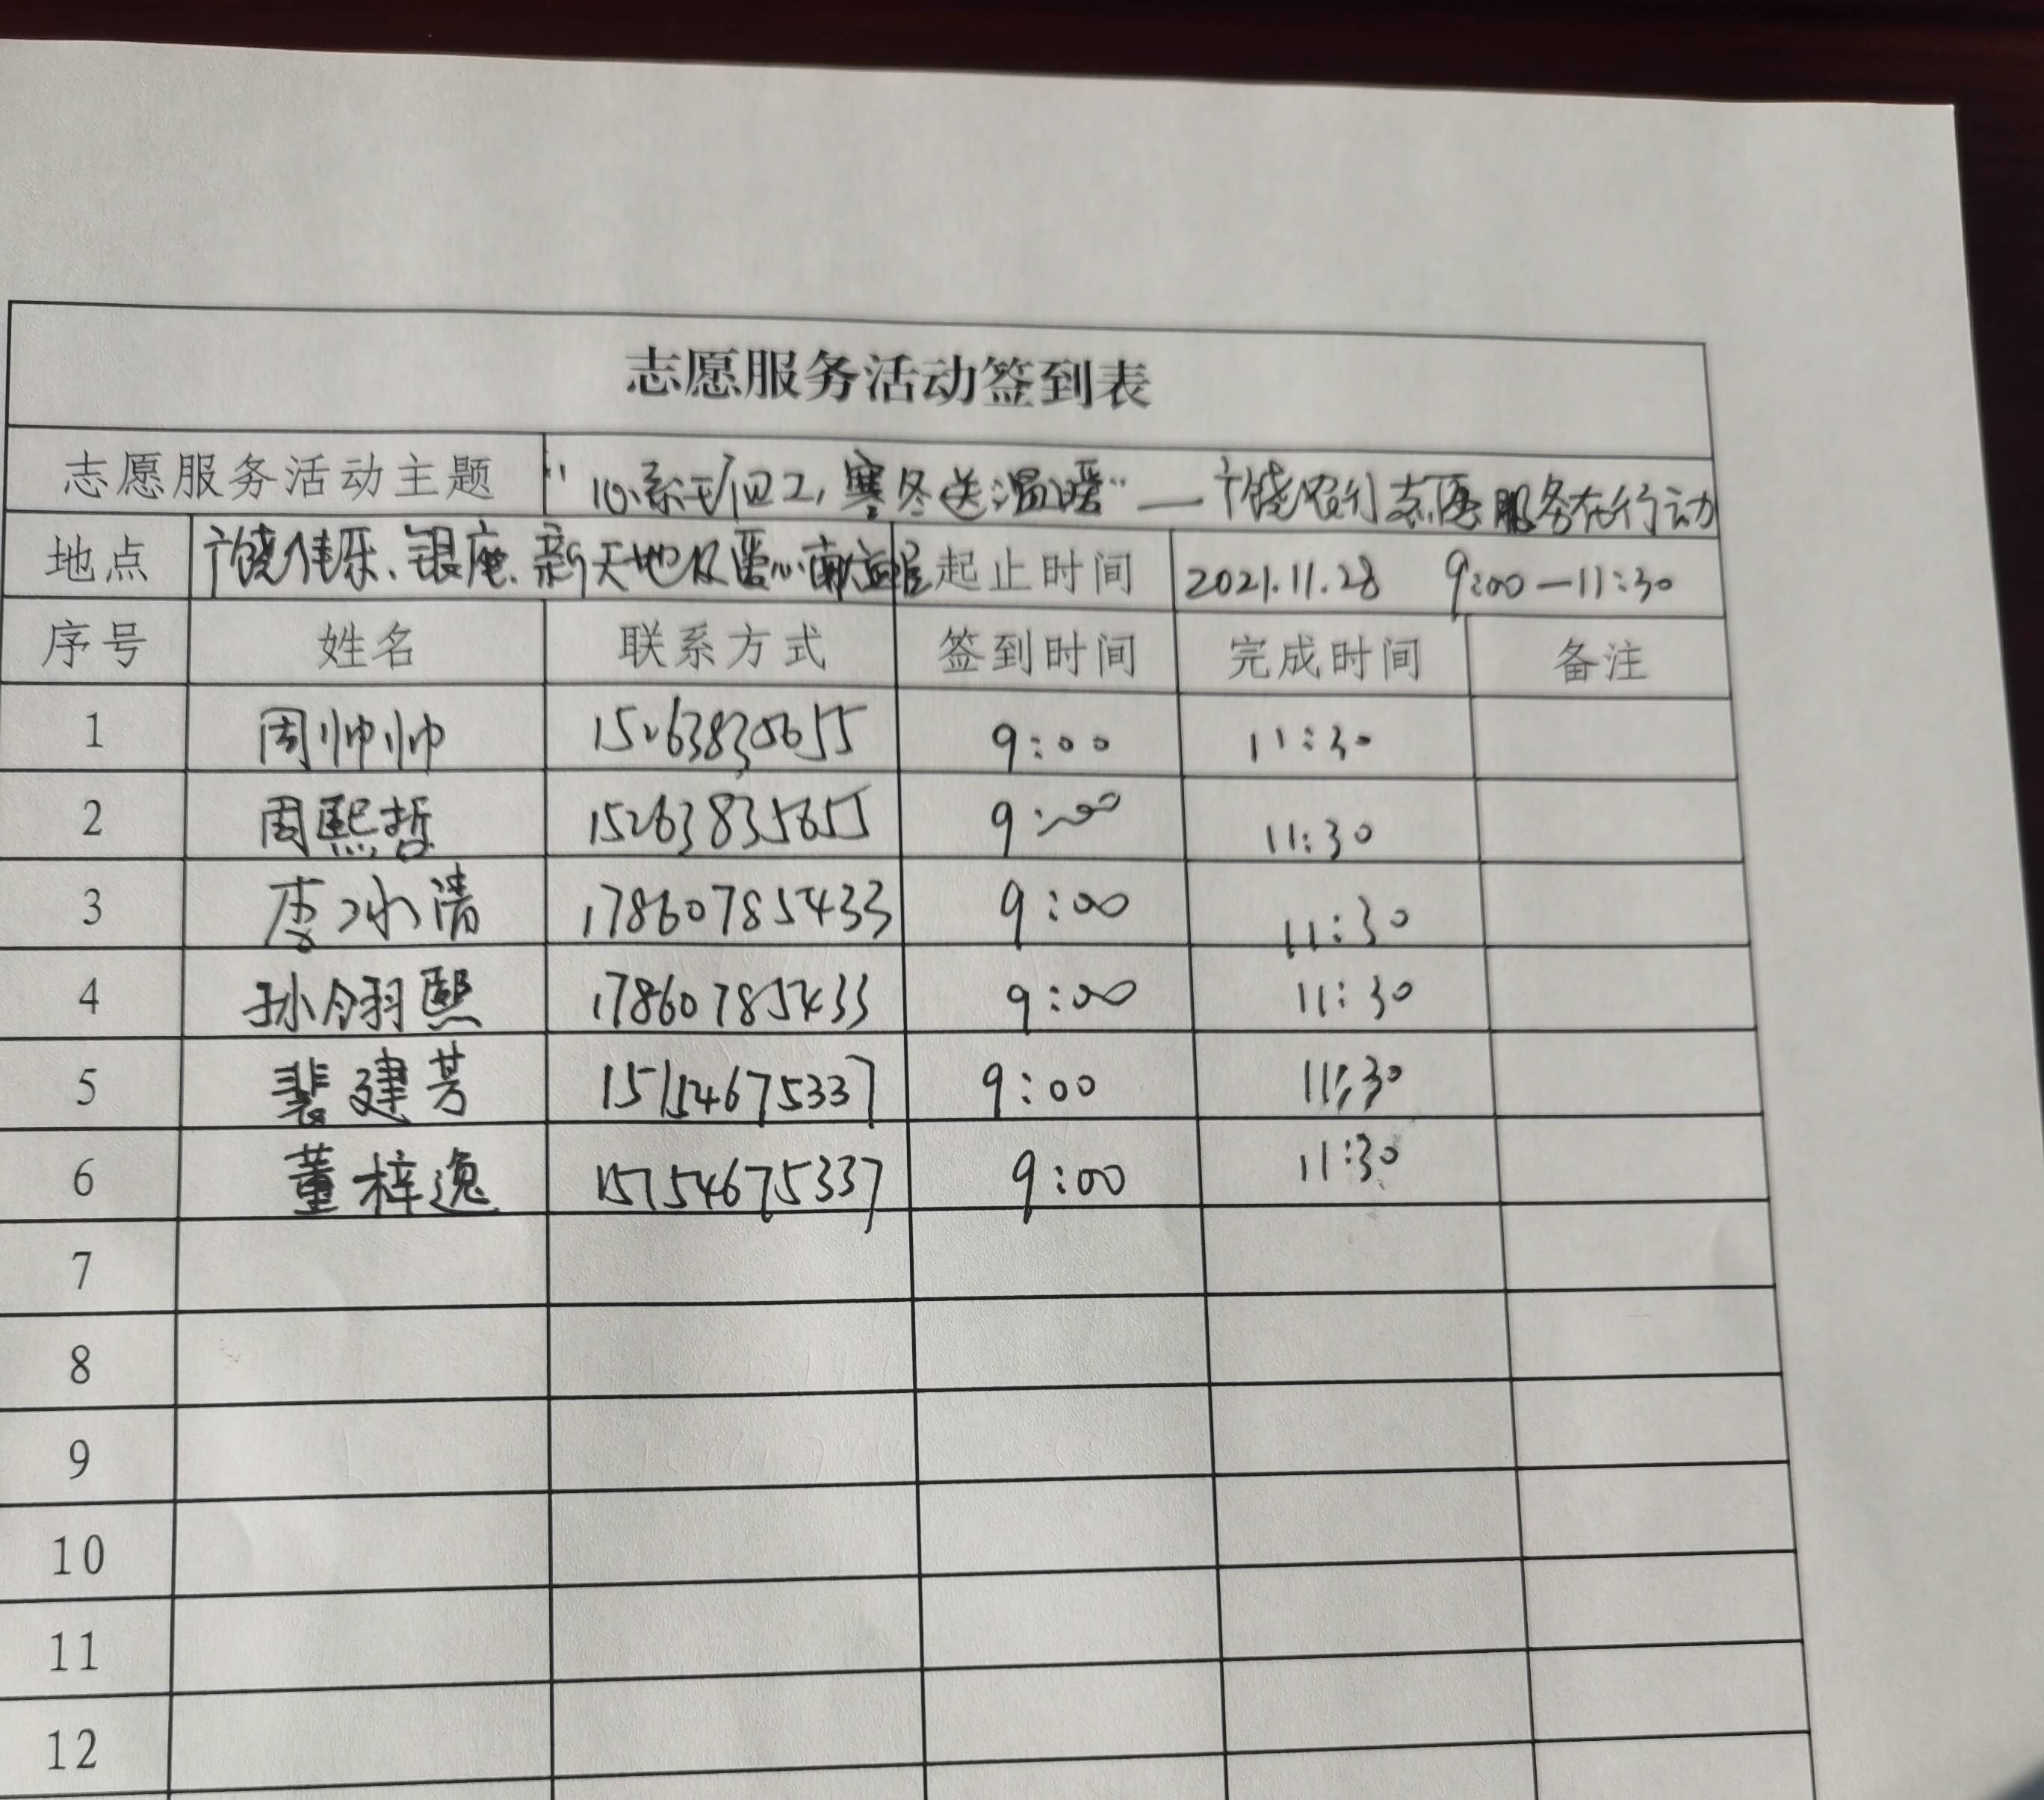 志愿服务活动签到表
志愿服务活动主题 "心系环卫工,寒冬送温暖"—广饶农行志愿服务在行动
地点 广饶佳乐、银座、新天地及爱心 起止时间 2021.11.28 9:00—11:30
序号 姓名 联系方式 签到时间 完成时间 备注
1 周帅帅 9:00 11:30
2 周熙哲 15263835655 9:00 11:30
3 李冰清 17860785433 9:00 11:30
4 孙翎熙 17860785433 9:00 11:30
5 裴建芳 9:00 11:30
6 董梓逸 15754675337 9:00 11:30
7
8
9
10
11
12